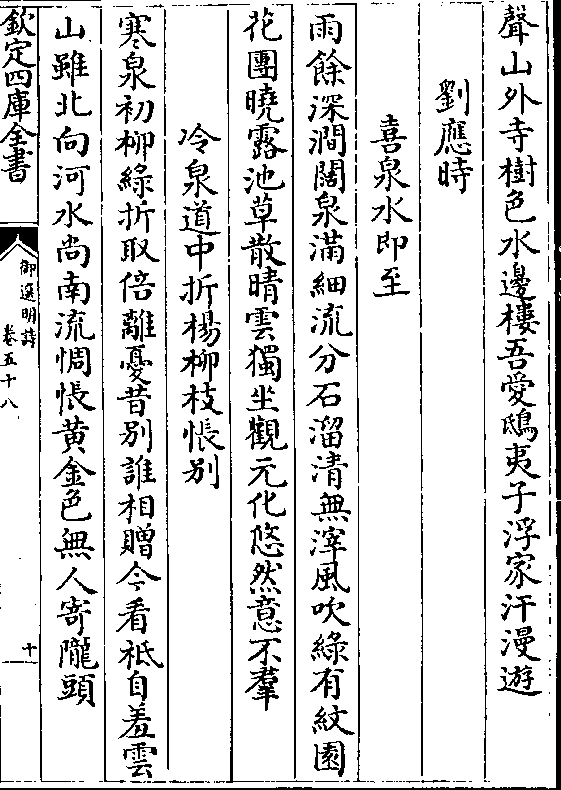 聲山外寺樹色水邊樓吾愛鴟夷子浮家汗漫遊
劉應時
喜泉水即至
雨餘深澗闊泉滿細流分石溜清無滓風吹綠有紋園
花團曉露池草散晴雲獨坐觀元化悠然意不羣
冷泉道中折楊柳枝悵别
寒泉初柳綠折取倍離憂昔别誰相贈今看祗自羞雲
山雖北向河水尚南流惆悵黄金色無人寄隴頭
欽定四庫全書
御選明詩
卷五十八
十